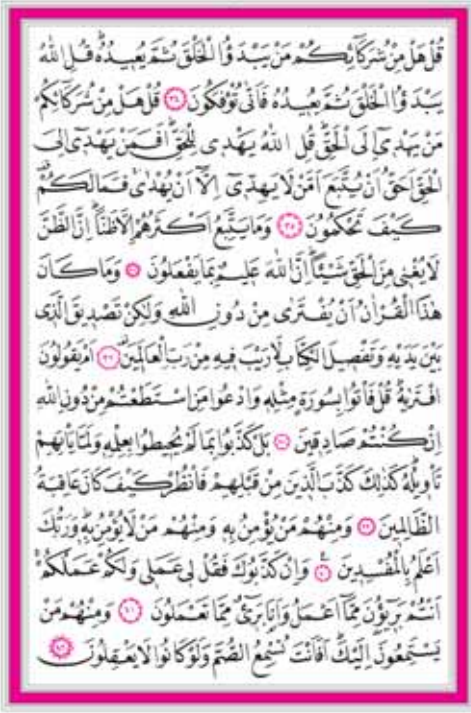 قُلْ هَلْ مِنْ شُرَكَٓائِكُمْ مَنْ يَبْدَؤُا الْخَلْقَ ثُمَّ يُعٖيدُهُۜ قُلِ اللّٰهُ
يَبْدَؤُا الْخَلْقَ ثُمَّ يُعٖيدُهُ فَاَنّٰى تُؤْفَكُونَ ﴿٣٤﴾ قُلْ هَلْ مِنْ شُرَكَٓائِكُمْ
مَنْ يَهْدٖٓي اِلَى الْحَقِّۜ قُلِ اللّٰهُ يَهْدٖي لِلْحَقِّۜ اَفَمَنْ يَهْدٖٓي اِلَى
الْحَقِّ اَحَقُّ اَنْ يُتَّبَعَ اَمَّنْ لَا يَهِدّٖٓي اِلَّٓا اَنْ يُهْدٰىۚ فَمَا لَكُمْ۠
كَيْفَ تَحْكُمُونَ ﴿٣٥﴾ وَمَا يَتَّبِعُ اَكْثَرُهُمْ اِلَّا ظَنًّاۜ اِنَّ الظَّنَّ
لَا يُغْنٖي مِنَ الْحَقِّ شَيْـًٔاۜ اِنَّ اللّٰهَ عَلٖيمٌ بِمَا يَفْعَلُونَ ﴿٣٦﴾ وَمَا كَانَ
هٰذَا الْقُرْاٰنُ اَنْ يُفْتَرٰى مِنْ دُونِ اللّٰهِ وَلٰكِنْ تَصْدٖيقَ الَّذٖي
بَيْنَ يَدَيْهِ وَتَفْصٖيلَ الْكِتَابِ لَا رَيْبَ فٖيهِ مِنْ رَبِّ الْعَالَمٖينَ ﴿٣٧﴾ اَمْ يَقُولُونَ
افْتَرٰيهُۜ قُلْ فَأْتُوا بِسُورَةٍ مِثْلِهٖ وَادْعُوا مَنِ اسْتَطَعْتُمْ مِنْ دُونِ اللّٰهِ
اِنْ كُنْتُمْ صَادِقٖينَ ﴿٣٨﴾ بَلْ كَذَّبُوا بِمَا لَمْ يُحٖيطُوا بِعِلْمِهٖ وَلَمَّا يَأْتِهِمْ
تَأْوٖيلُهُۜ كَذٰلِكَ كَذَّبَ الَّذٖينَ مِنْ قَبْلِهِمْ فَانْظُرْ كَيْفَ كَانَ عَاقِبَةُ
الظَّالِمٖينَ ﴿٣٩﴾ وَمِنْهُمْ مَنْ يُؤْمِنُ بِهٖ وَمِنْهُمْ مَنْ لَا يُؤْمِنُ بِهٖۜ وَرَبُّكَ
اَعْلَمُ بِالْمُفْسِدٖينَ ﴿٤٠﴾ وَاِنْ كَذَّبُوكَ فَقُلْ لٖي عَمَلٖي وَلَكُمْ عَمَلُكُمْۚ
اَنْتُمْ بَرٖٓيؤُ۫نَ مِمَّٓا اَعْمَلُ وَاَنَا۬ بَرٖٓيءٌ مِمَّا تَعْمَلُونَ ﴿٤١﴾ وَمِنْهُمْ مَنْ
يَسْتَمِعُونَ اِلَيْكَۜ اَفَاَنْتَ تُسْمِعُ الصُّمَّ وَلَوْ كَانُوا لَا يَعْقِلُونَ ﴿٤٢﴾